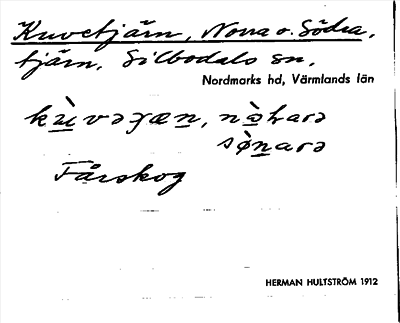 Kuvetjärn, Norra o. Södra,
tjärn, Silbodals sn,
Nordmarks hd, Värmlands län
Fårskog
HERMAN HULTSTRÖM 1912